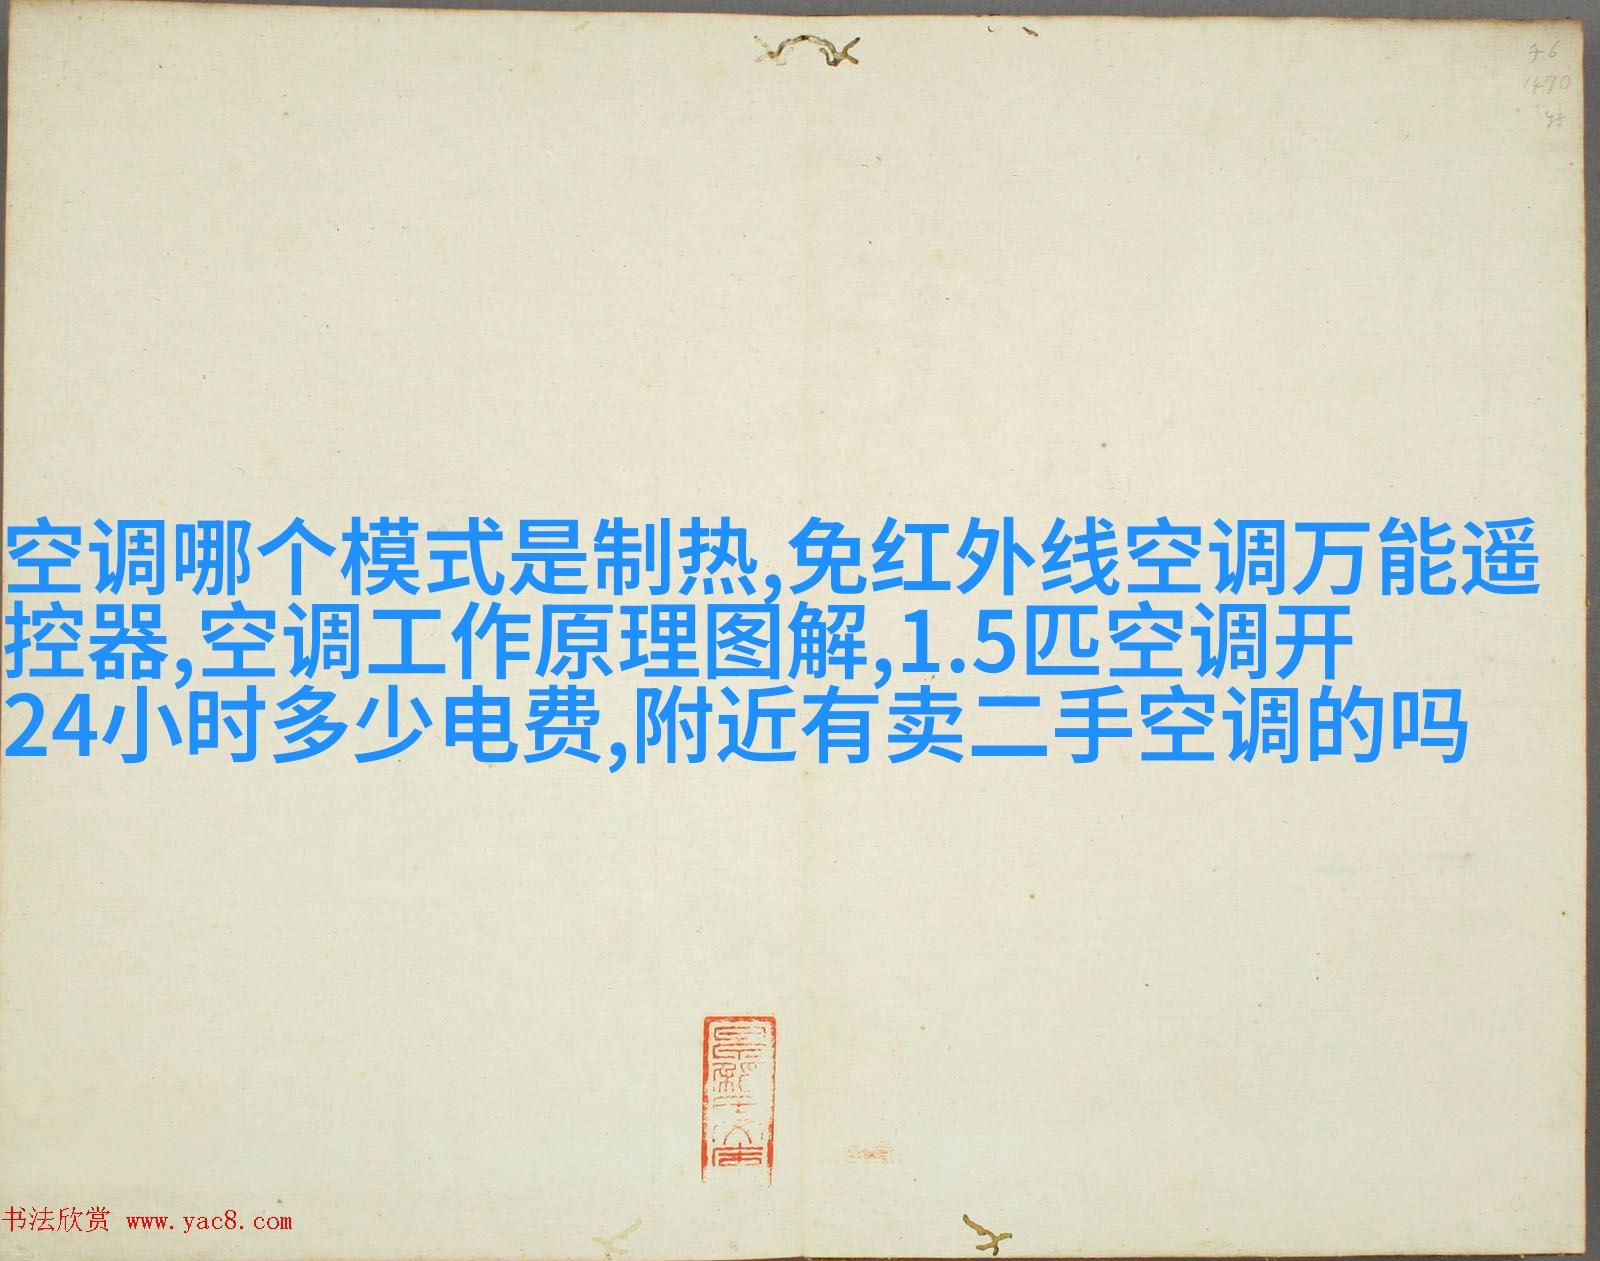 子6
1470
空调哪个模式是制热,免红外线空调万能遥
控器,空调工作原理图解,1.5匹空调开
24小时多少电费,附近有卖二手空调的吗
书法欣赏 www.yac8.com